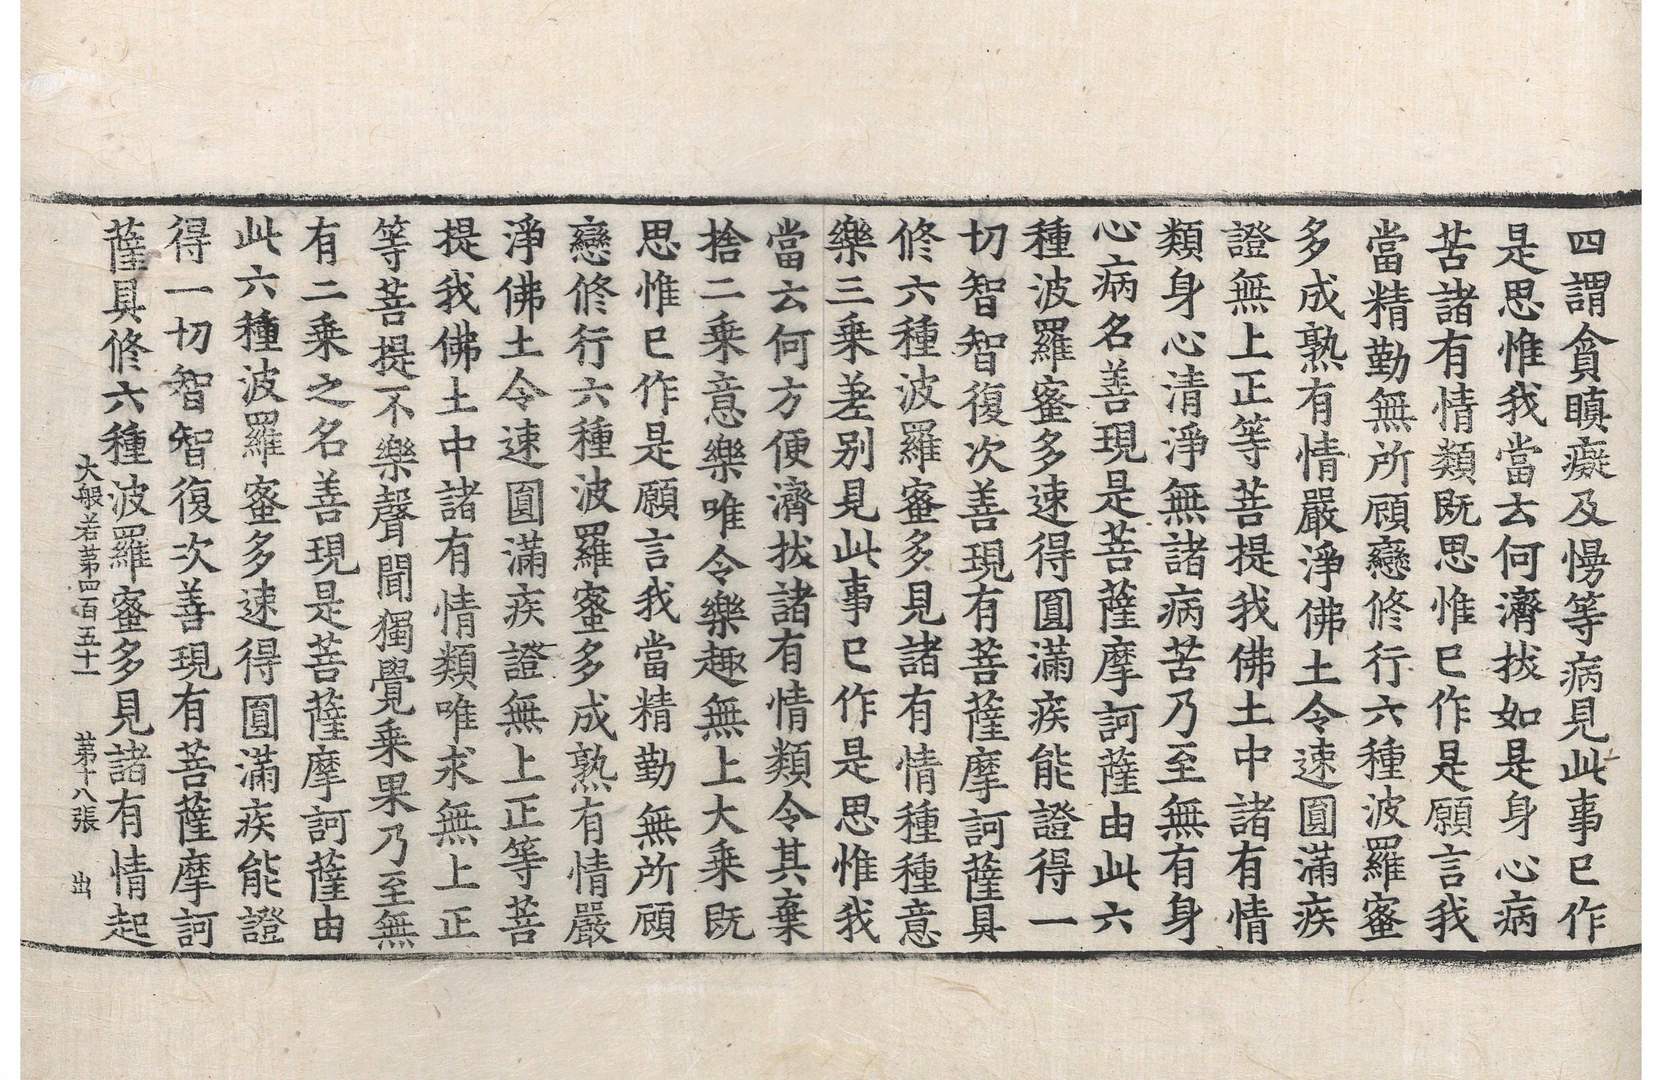 四謂貪瞋癡及慢等病見此事已作
是思惟我當云何濟拔如是身心病
苦諸有情類既思惟已作是願言我
當精勤無所顧戀修行六種波羅蜜
多成熟有情嚴淨佛土令速圓滿疾
證無上正等菩提我佛土中諸有情
類身心清淨無諸病苦乃至無有身
心病名善現是菩薩摩訶薩由此六
種波羅蜜多速得圓滿疾能證得一
切智智復次善現有菩薩摩訶薩具
修六種波羅蜜多見諸有情種種意
樂三乘差別見此事已作是思惟我
當云何方便濟拔諸有情類令其棄
捨二乘意樂唯令樂趣無上大乘既
思惟已作是願言我當精勤無所顧
戀修行六種波羅蜜多成熟有情嚴
淨佛土令速圓滿疾證無上正等菩
提我佛土中諸有情類唯求無上正
等菩提不樂聲聞獨覺乘果乃至無
有二乘之名善現是菩薩摩訶薩由
此六種波羅蜜多速得圓滿疾能證
得一切智智復次善現有菩薩摩訶
薩具修六種波羅蜜多見諸有情起
大般若第四百五十一 第十八張 出